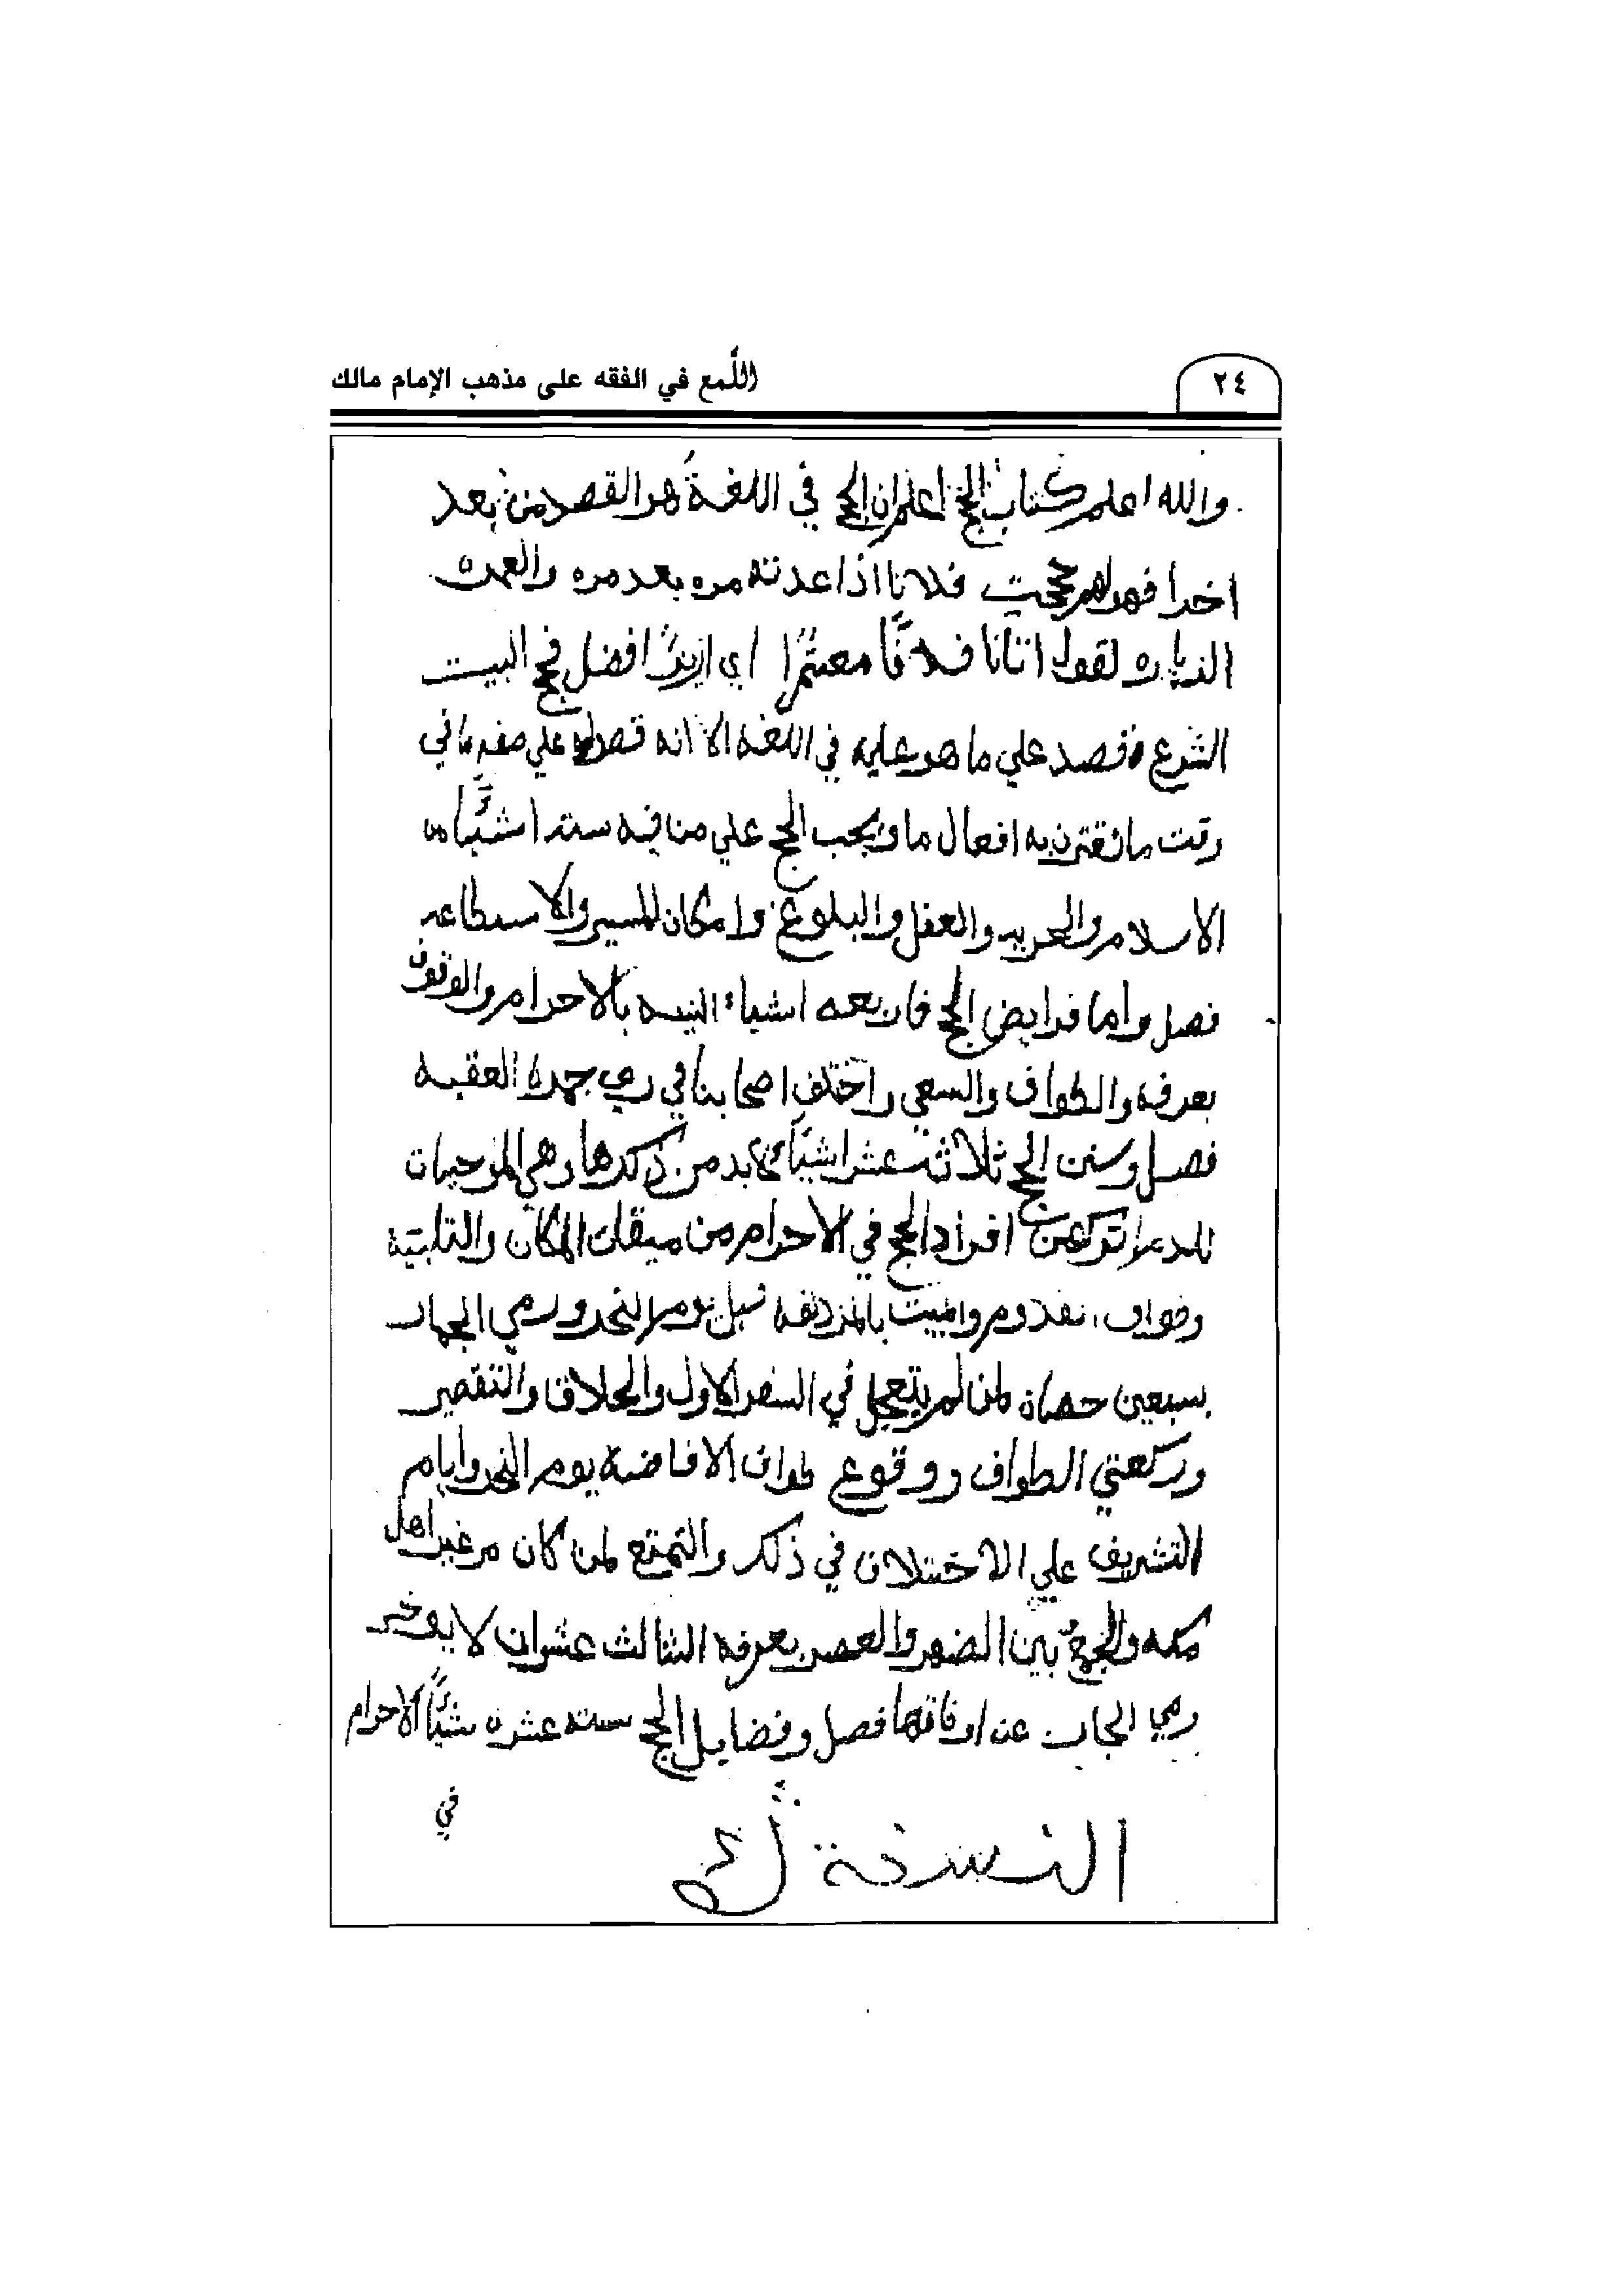 ٢٤
اللُّمع في الفقه على مذهب الإمام مالك
والله اعلم كتاب الحج اعلم ان الحج في اللغة هو القصد من بعد
اخرا فهو حججت فلانا اذا عدته مره بعد مره والعمره
الزياره لقول اتانا فلانًا معتمرًا اي ازيرً افضل فحج البيت
الشرع فقصد علي ما هو عليه في اللغه الا انه قصد علي صفه ما في
وقت ما تقترن به افعال ما ويجب الحج علي من فيه سته اشيًا
الاسلام والحريه والعقل والبلوغ وامكان المسير والاستطاعه
فصل واما فرايض الحج فاربعه اشياء النيه بالاحرام والوقوف
بعرفه والطواف والسعي واختلف اصحابنا في رمي جمرة العقبه
فصل وسنن الحج ثلاثة عشر اشيًا لا بد من ذكرها وهي الموجبات
للدم تركهن افراد الحج في الاحرام من ميقات المكان والتلبية
وطواف القدوم والمبيت بالمزدلفه قبل يوم النحر ورمي الجمار
بسبعين حصاه لمن لم يتعجل في النفر الاول والحلاق والتقصير
وركعتي الطواف ووقوع طواف الافاضة يوم النحر وايام
التشريف علي الاختلاف في ذلك والتمتع لمن كان من غير اهل
مكه والجمع بين الضهر والعصر بعرفه الثالث عشر ان لا يوخر
رمي الجمار عن اوقاتها فصل وفضايل الحج سته عشره شيًا الاحرام
في
النسخة ك